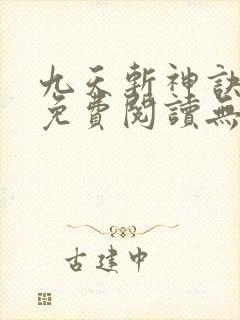 九天斬神訣
免費閱讀無
古建中